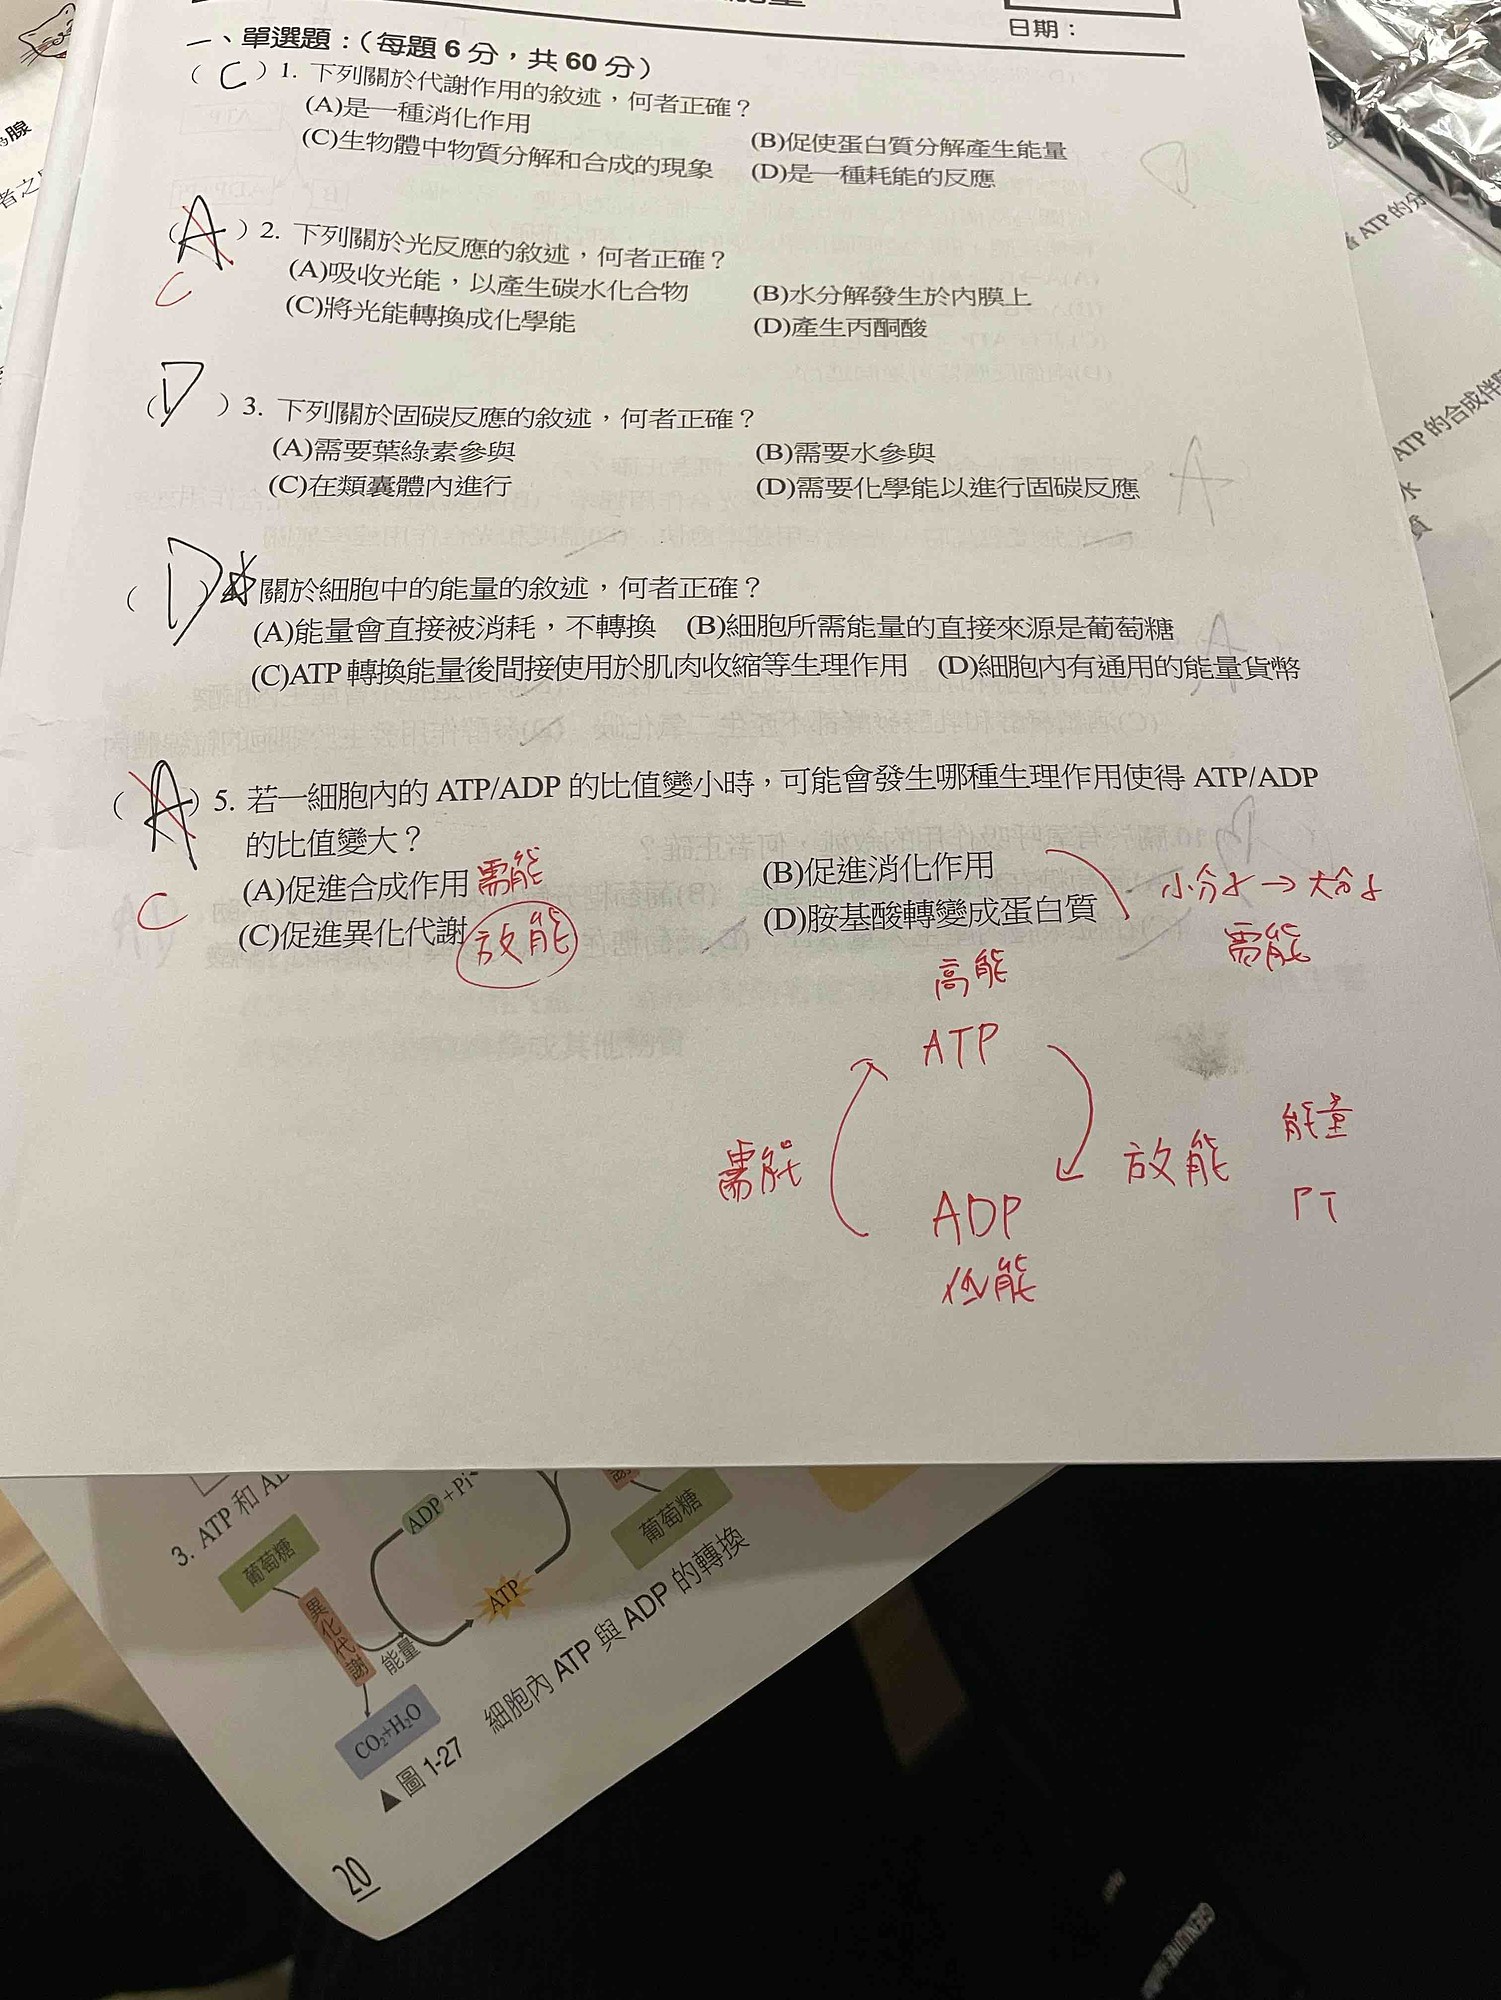 日期：
一、單選題：（每題 6 分，共 60 分）
（ C ）1. 下列關於代謝作用的敘述，何者正確？
(A)是一種消化作用
(B)促使蛋白質分解產生能量
(C)生物體中物質分解和合成的現象
(D)是一種耗能的反應
（ A ）2. 下列關於光反應的敘述，何者正確？
C
(A)吸收光能，以產生碳水化合物
(B)水分解發生於內膜上
(C)將光能轉換成化學能
(D)產生丙酮酸
（ D ）3. 下列關於固碳反應的敘述，何者正確？
(A)需要葉綠素參與
(B)需要水參與
(C)在類囊體內進行
(D)需要化學能以進行固碳反應
（ D ） 關於細胞中的能量的敘述，何者正確？
(A)能量會直接被消耗，不轉換 (B)細胞所需能量的直接來源是葡萄糖
(C)ATP 轉換能量後間接使用於肌肉收縮等生理作用 (D)細胞內有通用的能量貨幣
（ A ）5. 若一細胞內的 ATP/ADP 的比值變小時，可能會發生哪種生理作用使得 ATP/ADP
的比值變大？
C
(A)促進合成作用 需能
(B)促進消化作用
(C)促進異化代謝 放能
(D)胺基酸轉變成蛋白質
小分子→大分子
需能
高能
ATP
需能
放能
能量
ADP
低能
ATP 的分
ATP 的合成伴隨
3. ATP 和 AD
葡萄糖
異化代謝
能量
ADP+Pi
ATP
葡萄糖
CO₂+H₂O
▲圖 1-27 細胞內 ATP 與 ADP 的轉換
20